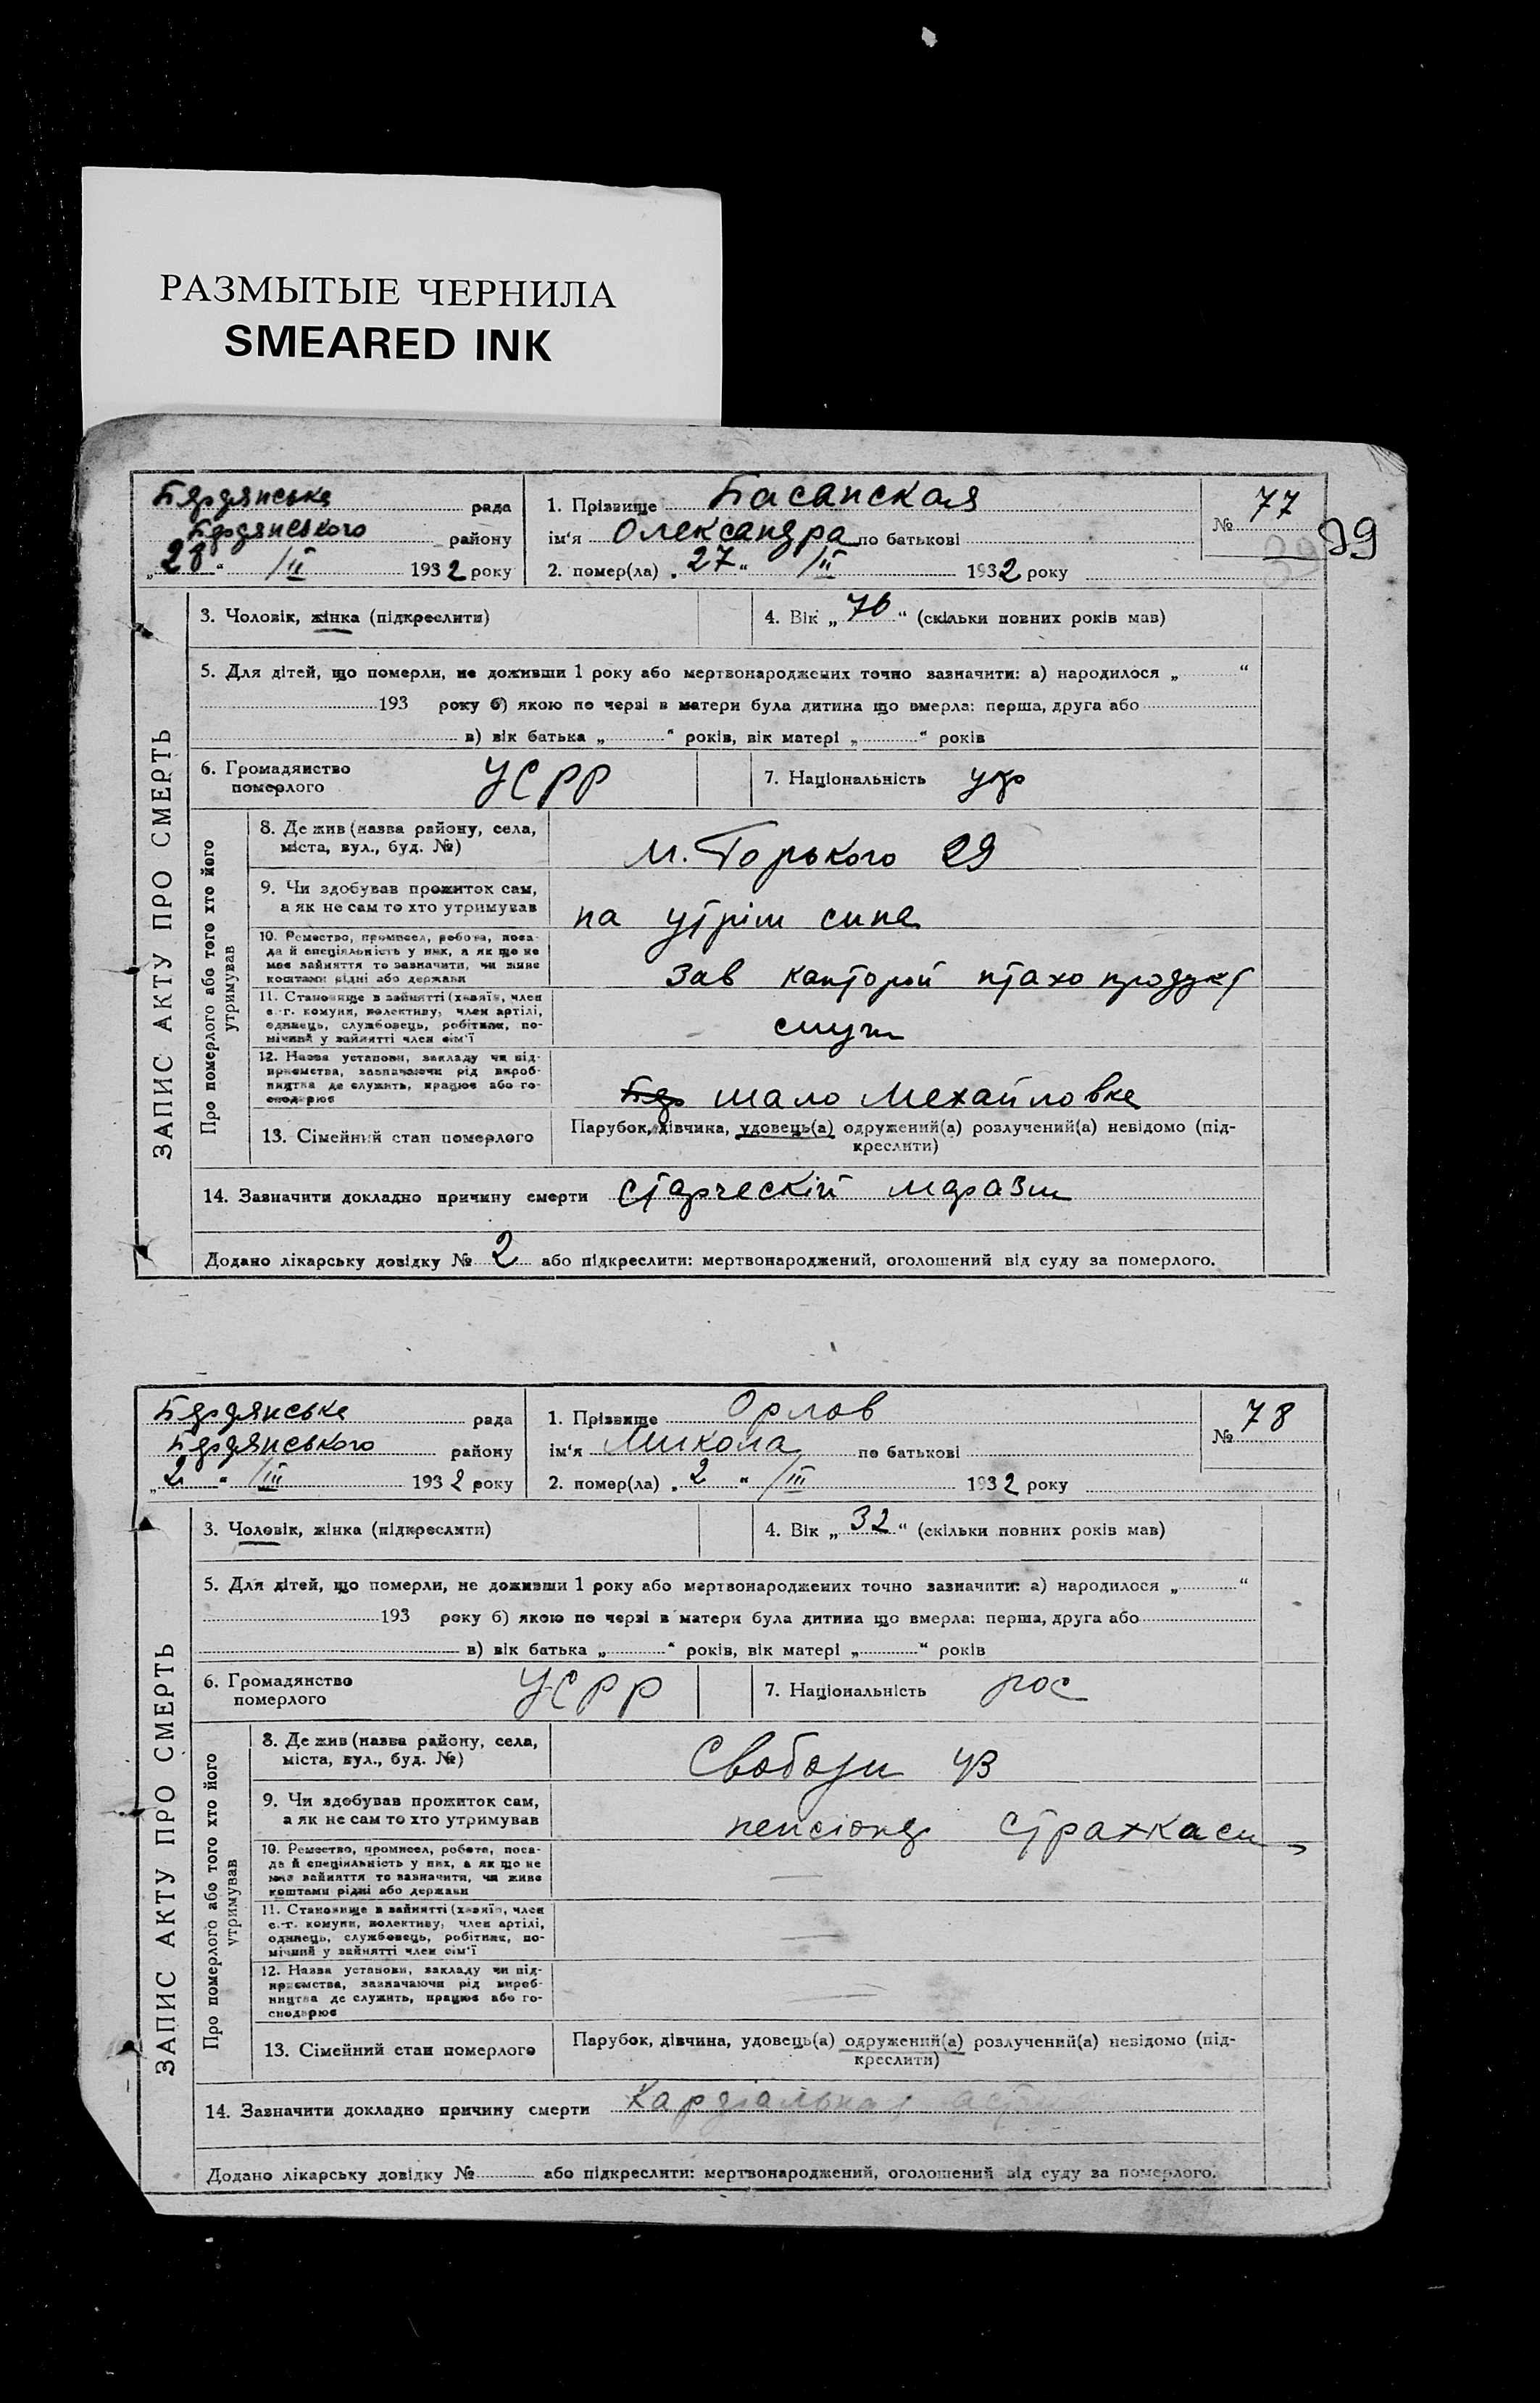 РАЗМЫТЫЕ ЧЕРНИЛА
SMEARED INK
Бердянська рада
Бердянського району
„28“ /II 1932 року
1. Прізвище Басанская
ім'я Олександра по батькові
2. помер(ла) „27“ /II 1932 року
№ 77
39
ЗАПИС АКТУ ПРО СМЕРТЬ
3. Чоловік, жінка (підкреслити)
4. Вік „76“ (скільки повних років мав)
5. Для дітей, що померли, не доживши 1 року або мертвонароджених точно зазначити: а) народилося „ “
193 року б) якою по черзі в матери була дитина що вмерла: перша, друга або
в) вік батька „ “ років, вік матері „ “ років
6. Громадянство
померлого
УСРР
7. Національність укр
Про померлого або того хто його
утримував
8. Де жив (назва району, села,
міста, вул., буд. №)
М. Горького 29
9. Чи здобував прожиток сам,
а як не сам то хто утримував
на утрім сина
10. Ремество, промисел, робота, поса-
да й спеціяльність у них, а як що не
має зайняття то зазначити, чи живе
коштами рідні або держави
Зав канторой птахо продукт
11. Становище в зайнятті (хазяїн, член
с.-г. комуни, колективу, член артілі,
одинець, службовець, робітник, по-
мічний у зайнятті член сім'ї
служ
12. Назва установи, закладу чи під-
приємства, зазначаючи рід вироб-
ництва де служить, працює або го-
сподарює
Бер мало Мехайловка
13. Сімейний стан померлого
Парубок, дівчина, удовець(а) одружений(а) розлучений(а) невідомо (під-
креслити)
14. Зазначити докладно причину смерти Старческій маразм
Додано лікарську довідку № 2 або підкреслити: мертвонароджений, оголошений від суду за померлого.
Бердянська рада
Бердянського району
„2“ /III 1932 року
1. Прізвище Орлов
ім'я Микола по батькові
2. помер(ла) „2“ /III 1932 року
№ 78
ЗАПИС АКТУ ПРО СМЕРТЬ
3. Чоловік, жінка (підкреслити)
4. Вік „32“ (скільки повних років мав)
5. Для дітей, що померли, не доживши 1 року або мертвонароджених точно зазначити: а) народилося „ “
193 року б) якою по черзі в матери була дитина що вмерла: перша, друга або
в) вік батька „ “ років, вік матері „ “ років
6. Громадянство
померлого
УСРР
7. Національність рос
Про померлого або того хто його
утримував
8. Де жив (назва району, села,
міста, вул., буд. №)
Свободи 43
9. Чи здобував прожиток сам,
а як не сам то хто утримував
пенсіонер Страхкаси
10. Ремество, промисел, робота, поса-
да й спеціяльність у них, а як що не
має зайняття то зазначити, чи живе
коштами рідні або держави
—
11. Становище в зайнятті (хазяїн, член
с.-г. комуни, колективу, член артілі,
одинець, службовець, робітник, по-
мічний у зайнятті член сім'ї
—
12. Назва установи, закладу чи під-
приємства, зазначаючи рід вироб-
ництва де служить, працює або го-
сподарює
—
13. Сімейний стан померлого
Парубок, дівчина, удовець(а) одружений(а) розлучений(а) невідомо (під-
креслити)
14. Зазначити докладно причину смерти Кардіальная
Додано лікарську довідку № або підкреслити: мертвонароджений, оголошений від суду за померлого.